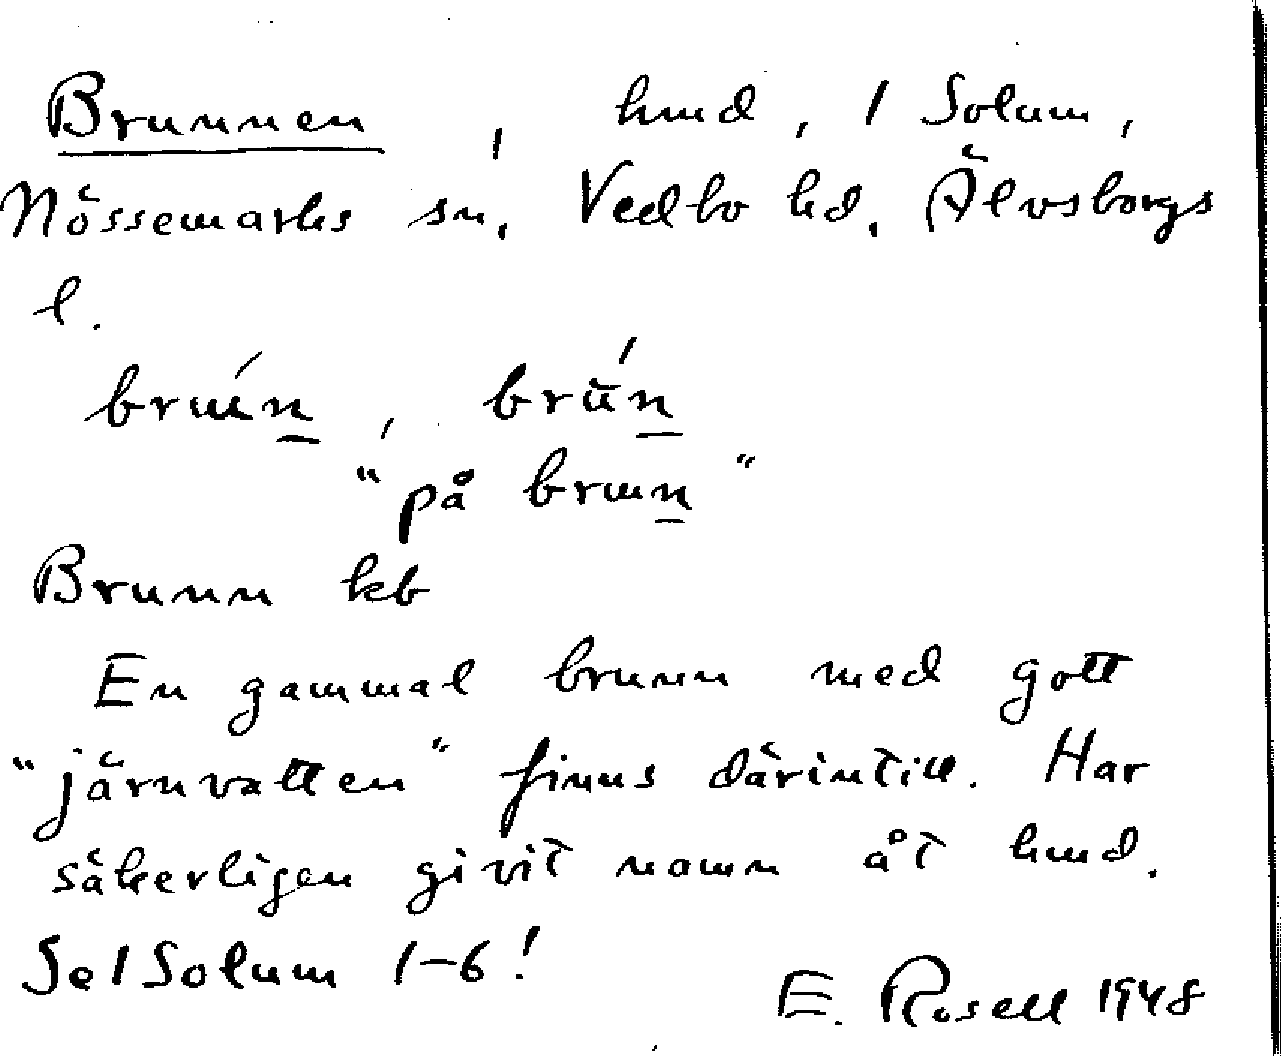 Brunnen, hmd, 1 Solum,
Nössemarks sn, Vedbo hd. Älvsborgs
l.
brun, brun
"på brun"
Brunn kb
En gammal brunn med gott
"järnvatten" finns därintill. Har
säkerligen givit namn åt hmd.
Se 1 Solum 1-6!
E. Rosell 1948